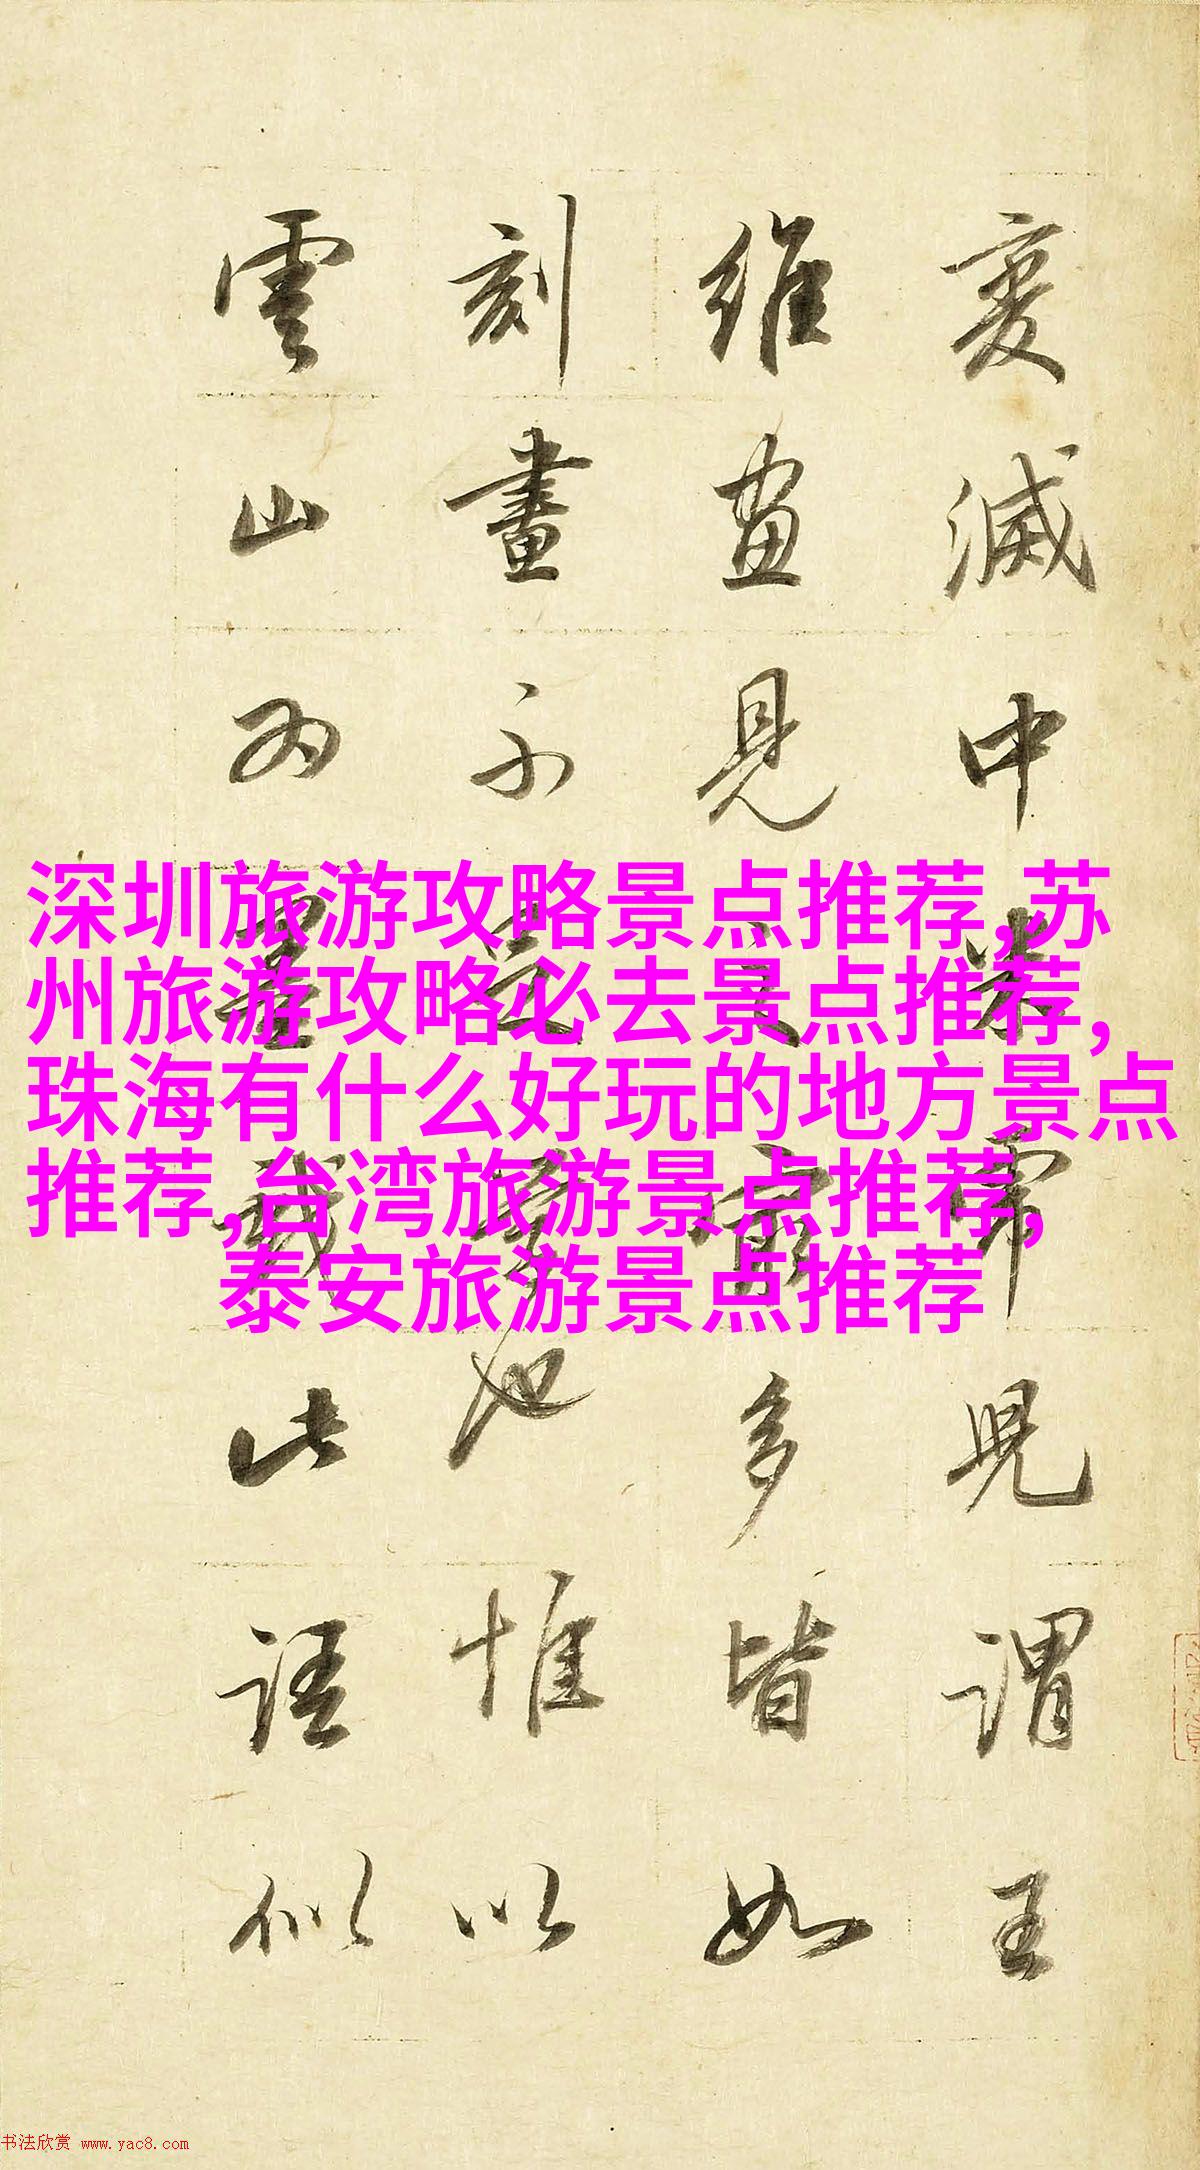 変滅中米常見謂王
維画見之最多皆如
刻畫不足學也惟以
雲山为墨戲此語似
深圳旅游攻略景点推荐,苏
州旅游攻略必去景点推荐,
珠海有什么好玩的地方景点
推荐,台湾旅游景点推荐,
泰安旅游景点推荐
书法欣赏 www.yac8.com